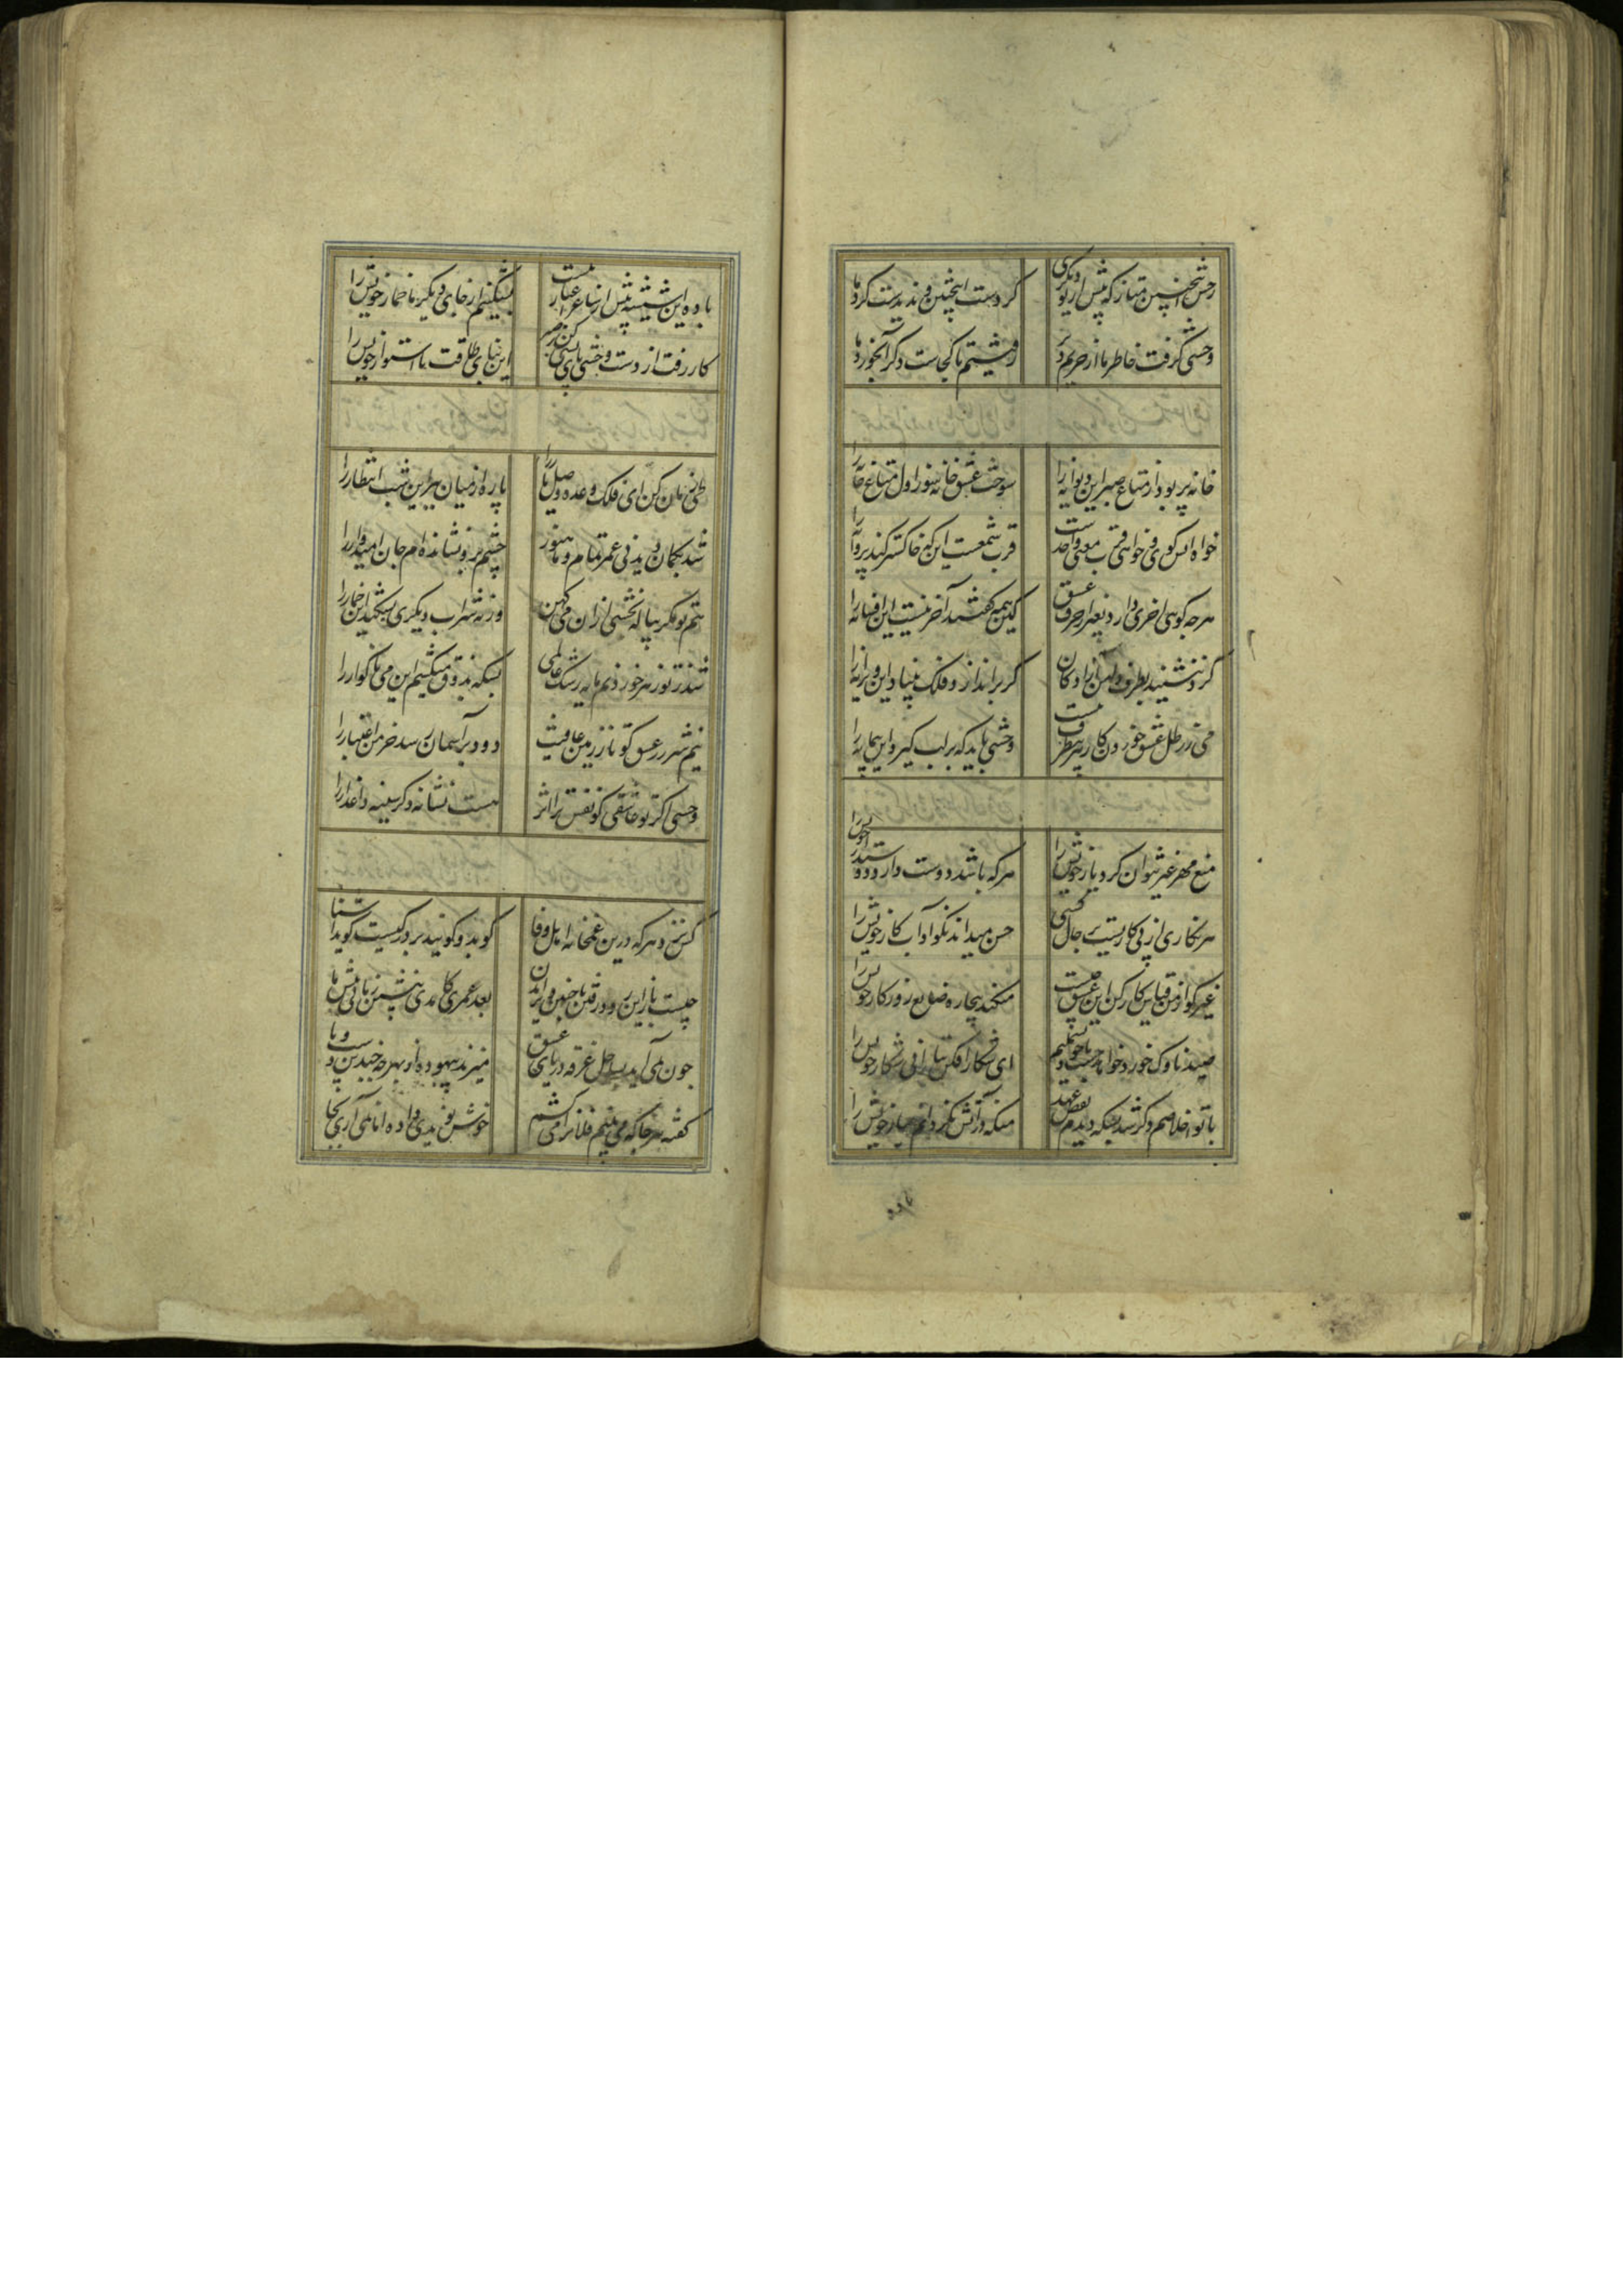 رخش اینچنین متاز که پیش از تو دیگری
کردست اینچنین و ندیدست گرد ما
وحشی گرفت خاطر ما از حریم دیر
رفتیم تا کجاست دگر آبخورد ما
خانه پر بود از متاع صبر این دیوانه را
سوخت عشق خانه سوز اول متاع خانه را
خواه آتش گوی و خواهی قرب معنی واحد است
قرب شمعست این که خاکستر کند پروانه را
هرچه گویی آخری دارد بغیر از حرف عشق
کین همه گفتند آخر نیست این افسانه را
گرد ننشیند بطرف دامن آزادگان
گر براندازد فلک بنیاد این ویرانه را
می ز رطل عشق خوردن کار هر بیظرف نیست
وحشی باید که بر لب گیرد این پیمانه را
منع مهر غیر نتوان کرد یار خویش را
هر که باشد دوست دارد دوستدار خویش را
هر نگاری از پی کاریست بر حال کسی
حسن میداند نکو آداب کار خویش را
غیر گو از من قیاس کار کن این عشق چیست
میکند بیچاره ضایع روزگار خویش را
صید ناوک خورده خواهد جست ما خود بسملیم
ای شکارافکن بتاز از پی شکار خویش را
با تو اخلاصم دگر شد بسکه دیدم نقض عهد
منکه در آتش نگردانم عیار خویش را
باده این شیشه بیش از ساغر اغیار نیست
بشکنیم از جای دیگر ما خمار خویش را
کار رفت از دست وحشی پای بستی کن ز صبر
این بنای طاقت نااستوار خویش را
طی زمان کن ای فلک وعده وصل یار را
پاره از میان ببر این شب انتظار را
شد بگمان دیدنی عمر تمام و ما هنوز
چشم بره نشانده‌ام جان امیدوار را
هم تو مگر پیاله بخشی از آن می کهن
ور نه شراب دیگری نشکند این خمار را
شد ز تو زهر خوردنم مایه رشک عالمی
بسکه بذوق میکشم این می ناگوار را
نیم شرر ز عشق کو تا ز زمین عافیت
دود بر آسمان رسد خرمن اعتبار را
وحشی اگر تو عاشقی کو نفس ترا اثر
هست نشانه دگر سینه داغدار را
کس نزد هرگز درین غمخانه اهل وفا
گر بدو گویند بر در کیست گوید آشنا
چیست باز این زود رفتن یا چنین دیر آمدن
بعد عمری کامدی بنشین زمانی پیش ما
چون نمی‌آید بساحل غرقه دریای عشق
میزند بیهوده از بهر چه چندین دست و پا
گفته هر جا که می‌بینم فلان را می‌کشم
خوش نویدی داده اما نمی‌آری بجا